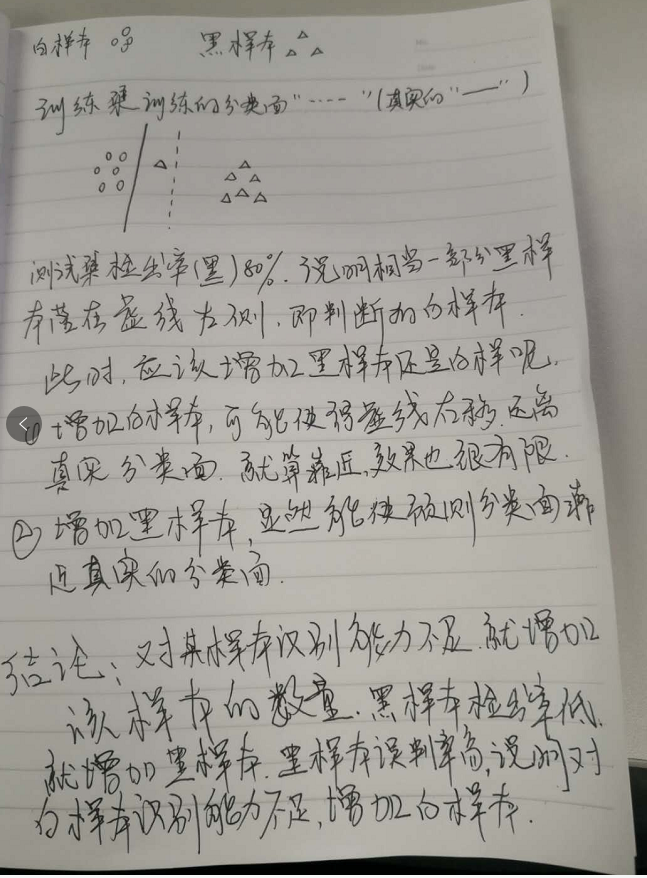 白样本 黑样本
训练集训练的分类面"----"(真实的"——")
测试集检出率(黑)80%.说明相当一部分黑样
本落在虚线左侧,即判断为白样本.
此时,应该增加黑样本还是白样呢.
① 增加白样本,可能使得虚线右移.远离
真实分类面.就算靠近,效果也很有限.
② 增加黑样本,显然能使预测分类面靠
近真实的分类面.
结论:对某样本识别能力不足.就增加
该样本的数量.黑样本检出率低.
就增加黑样本.黑样本误判率高,说明对
白样本识别能力不足,增加白样本.